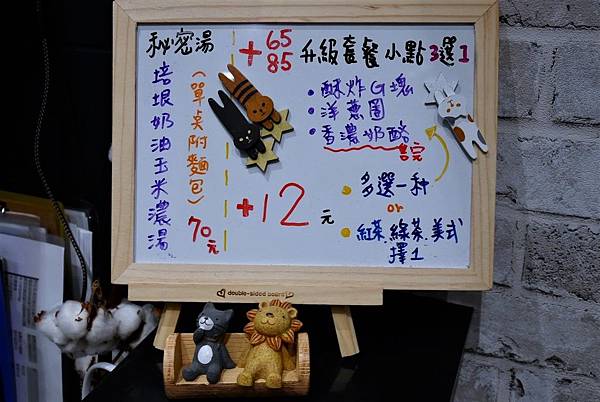 秘密湯
培垠奶油玉米濃湯
(單桌附麵包)
70元
+65
85
升級套餐小點3選1
•酥炸G塊
•洋蔥圈
•香濃奶酪
售完
+12元
•多選一种
or
•紅茶、綠茶、美式
擇1
double-sided board